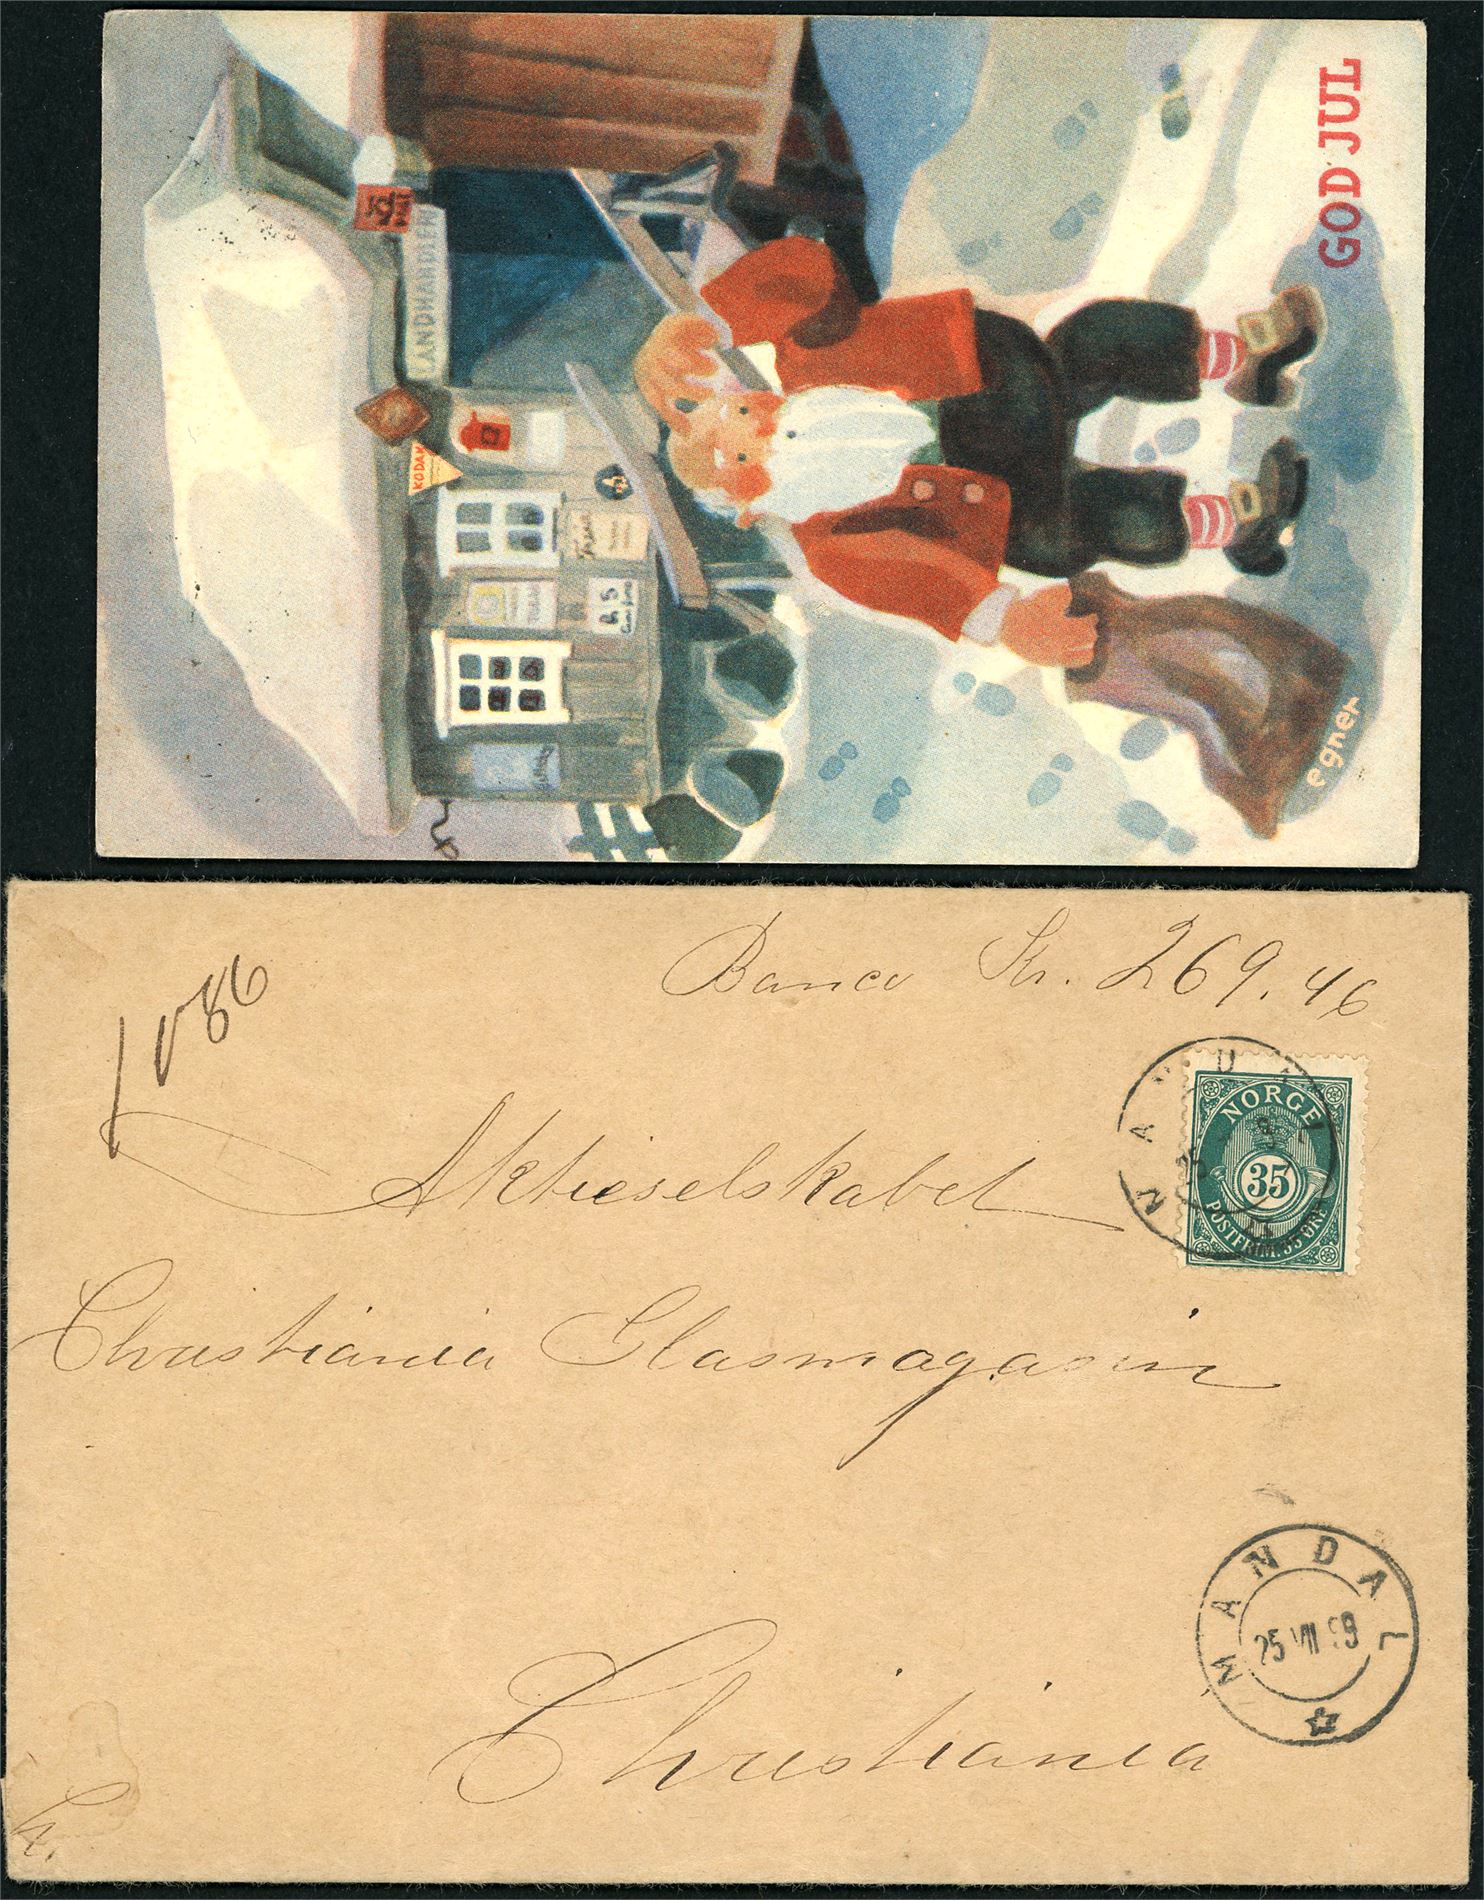 GOD JUL
LANDHANDLERI
KODAK
egner
1086
Banco Kr. 269.46
Aktieselskabet
Christiania Glasmagasin
Christiania
MANDAL
NORGE
35
POSTFRIM. 35 ØRE
MANDAL
25 VII 99